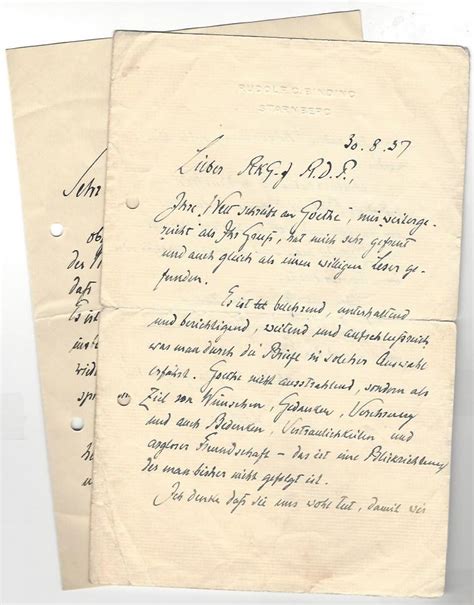 RUDOLF G. BINDING
STARNBERG
30.8.37
Lieber
Ihre "Welt schreibt an Goethe", mir weiterge-
reicht als Ihr Gruß, hat mich sehr gefreut
und auch gleich als einen willigen Leser ge-
funden.
Es ist belehrend, unterhaltend
und berichtigend, weitend und aufschlußreich
was man durch die Briefe in solcher Auswahl
erfährt. Goethe nicht ausstrahlend, sondern als
Ziel von Wünschen, Gedanken, Verehrung
und auch Bedenken, Vertraulichkeiten und
argloser Freundschaft – das ist eine Blickrichtung
der man bisher nicht gefolgt ist.
Ich denke daß sie uns wohl tut, damit wir
Sehr
der
daß
Es ist